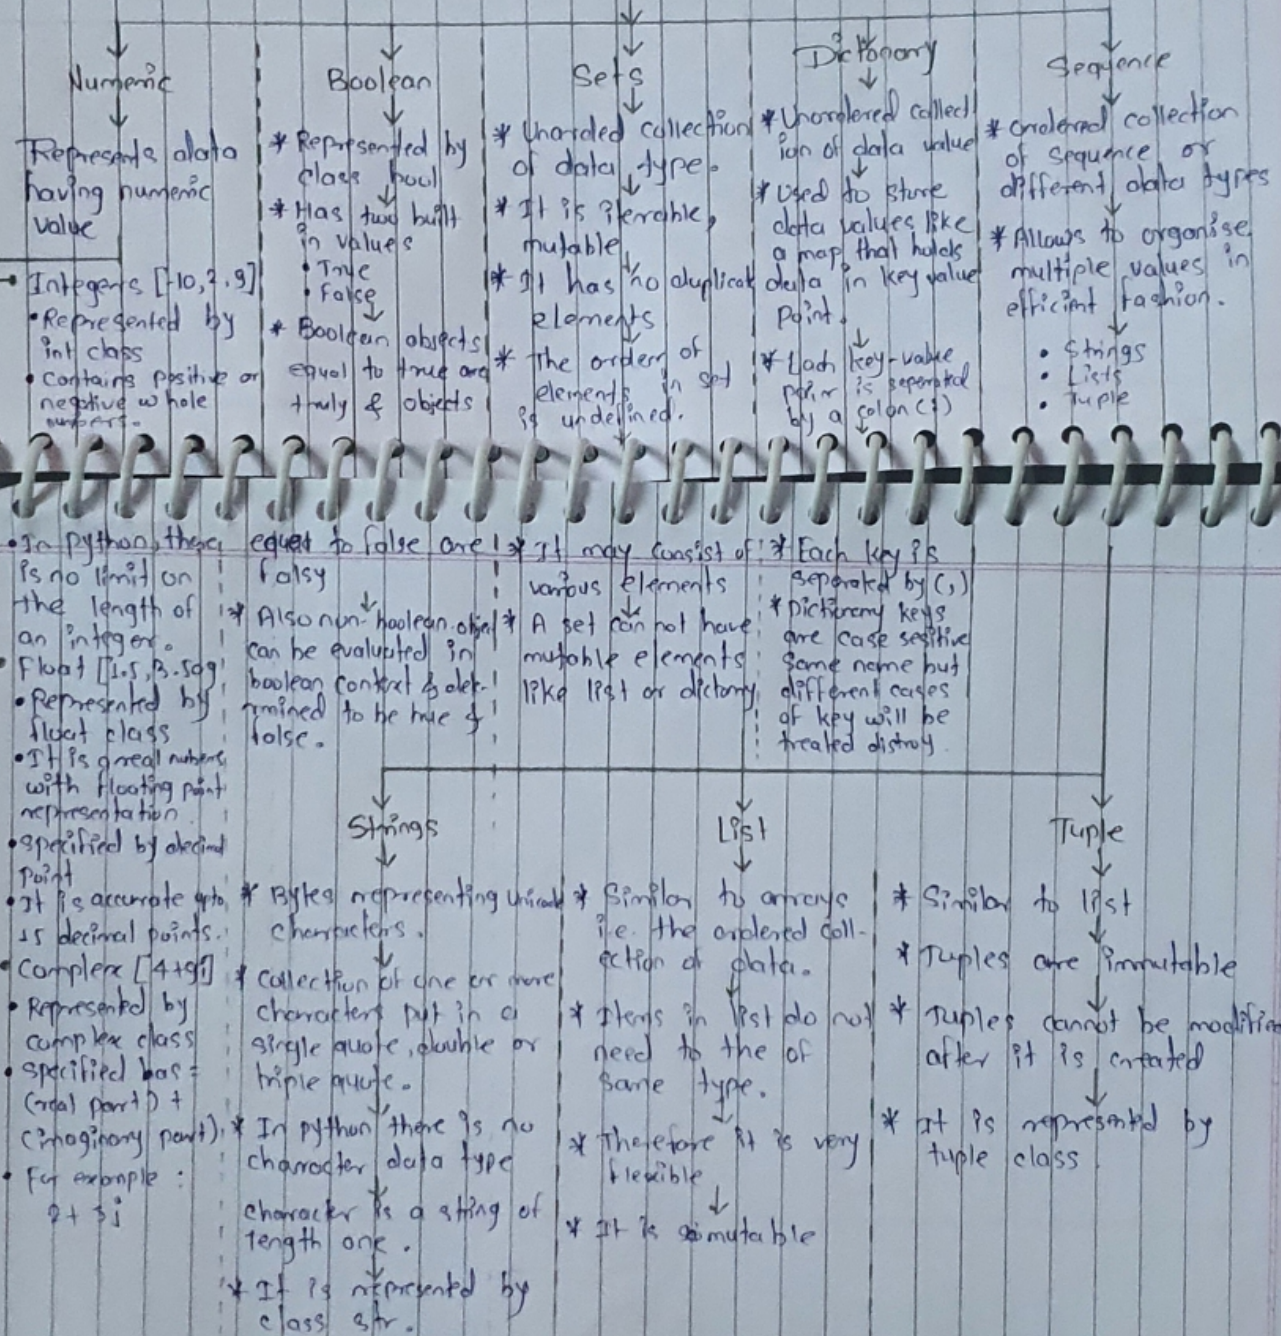 Numeric
Represents data
having numeric
value
Integers [-10, 2, 9]
• Represented by
int class
• Contains positive or
negative whole
numbers.
• In python, there
is no limit on
the length of
an integer.
Float [1.5, 3.59]
• Represented by
float class
• It is a real numbers
with floating point
representation
• specified by decimal
point
• It is accurate upto
15 decimal points.
Complex [4+9j]
• Represented by
complex class
• specified bas=
(real part) +
(imaginary part).
• For example :
2+3j
Boolean
* Represented by
class bool
* Has two built
in values
• True
• False
* Boolean objects
equal to true are
truly & objects
equal to false are
falsy
* Also non-boolean objet
can be evaluated in
boolean context & det-
rmined to be true &
false.
Sets
* Unorded collection
of data type.
* It is iterable,
mutable
* It has no duplicat
elements
* The order of
elements in set
is undefined.
* It may consist of
various elements
* A set can not have
mutable elements
like list or dictonary
Dictonary
* Unordered collect
ion of data value
* Used to store
data values like
a map that holds
data in key value
point.
* Each key-value
pair is seperated
by a colon (:)
* Each key is
seperated by (,)
* Dictionary keys
are case sesitive
same name but
different cases
of key will be
treated
Sequence
* ordered collection
of sequence or
different data types
* Allows to organise
multiple values in
efficient fashion.
• Strings
• Lists
• Tuple
Strings
* Bytes representing unicode
characters.
* Collection of one or more
characters put in a
single quote, double or
triple quote.
* In python there is no
character data type
character is a string of
length one.
* It is represented by
class str.
List
* Similar to arrays
i.e. the ordered coll-
ection of data.
* Items in list do not
need to the of
same type.
* Therefore it is very
flexible
* It is mutable
Tuple
* Similar to list
* Tuples are immutable
* Tuples cannot be modifie
after it is created
* It is represented by
tuple class